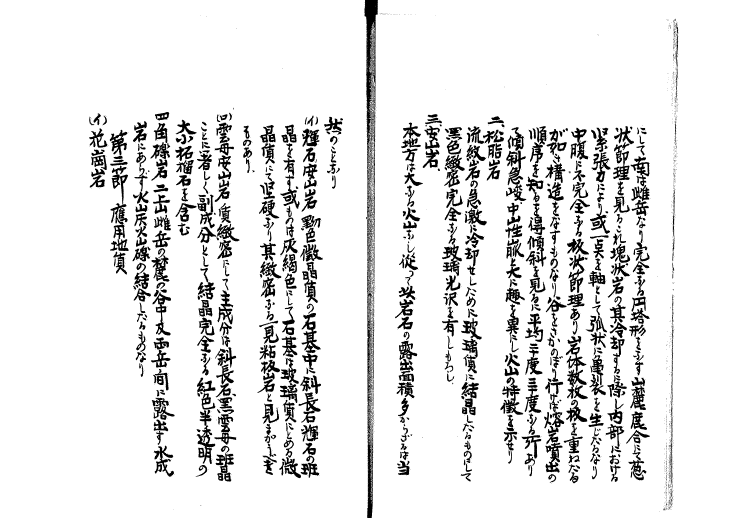 にして南は雌岳なり完全なる円塔形をなす山麓度合にて葱
状節理を見るこれ塊状岩の其冷却するに際し内部における
緊張力により或一点を軸として弧状に亀裂を生じたるなり
中腹に不完全なる板状節理あり岩体数枚の板を重ねたる
が如き構造をなすものなり谷をさかのぼり行けば熔岩噴出の
順序を知るを得傾斜を見るに平均二十度三十度なる所あり
て傾斜急峻中性脈と大に趣を異にし火山の特徴を示せり
二、松脂岩
流紋岩の急激に冷却せしために玻璃質に結晶したるものにして
黒色緻密完全なる玻璃光沢を有しもろし
三、安山岩
本地方は大なる火山なし従って此岩石の露出面積多からざるは当
然のことなり
(イ)輝石安山岩 黝色微晶質の石基中に斜長石輝石の班
晶を有す或ものは灰褐色にして石基は玻璃質にとめる微
晶質にて堅硬なり其緻密なる一見粘板岩と見まがふべき
ものあり
(ロ)雲母安山岩 質緻密にして主成分は斜長石黒雲母の班晶
ことに著しく副成分として結晶完全なる紅色半透明の
大小柘榴石を含む
四、角礫岩 二上山雌岳の麓の谷中及西岳間に露出す水成
岩にあらず火山灰火山礫の結合したるものなり
第三節 應用地質
(イ)花崗岩